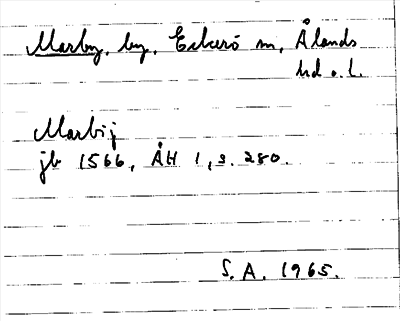 Marby, by, Eckerö sn, Ålands
hd o. l.
Marbij
jb 1566, ÅH 1, s. 280.
S. A. 1965.